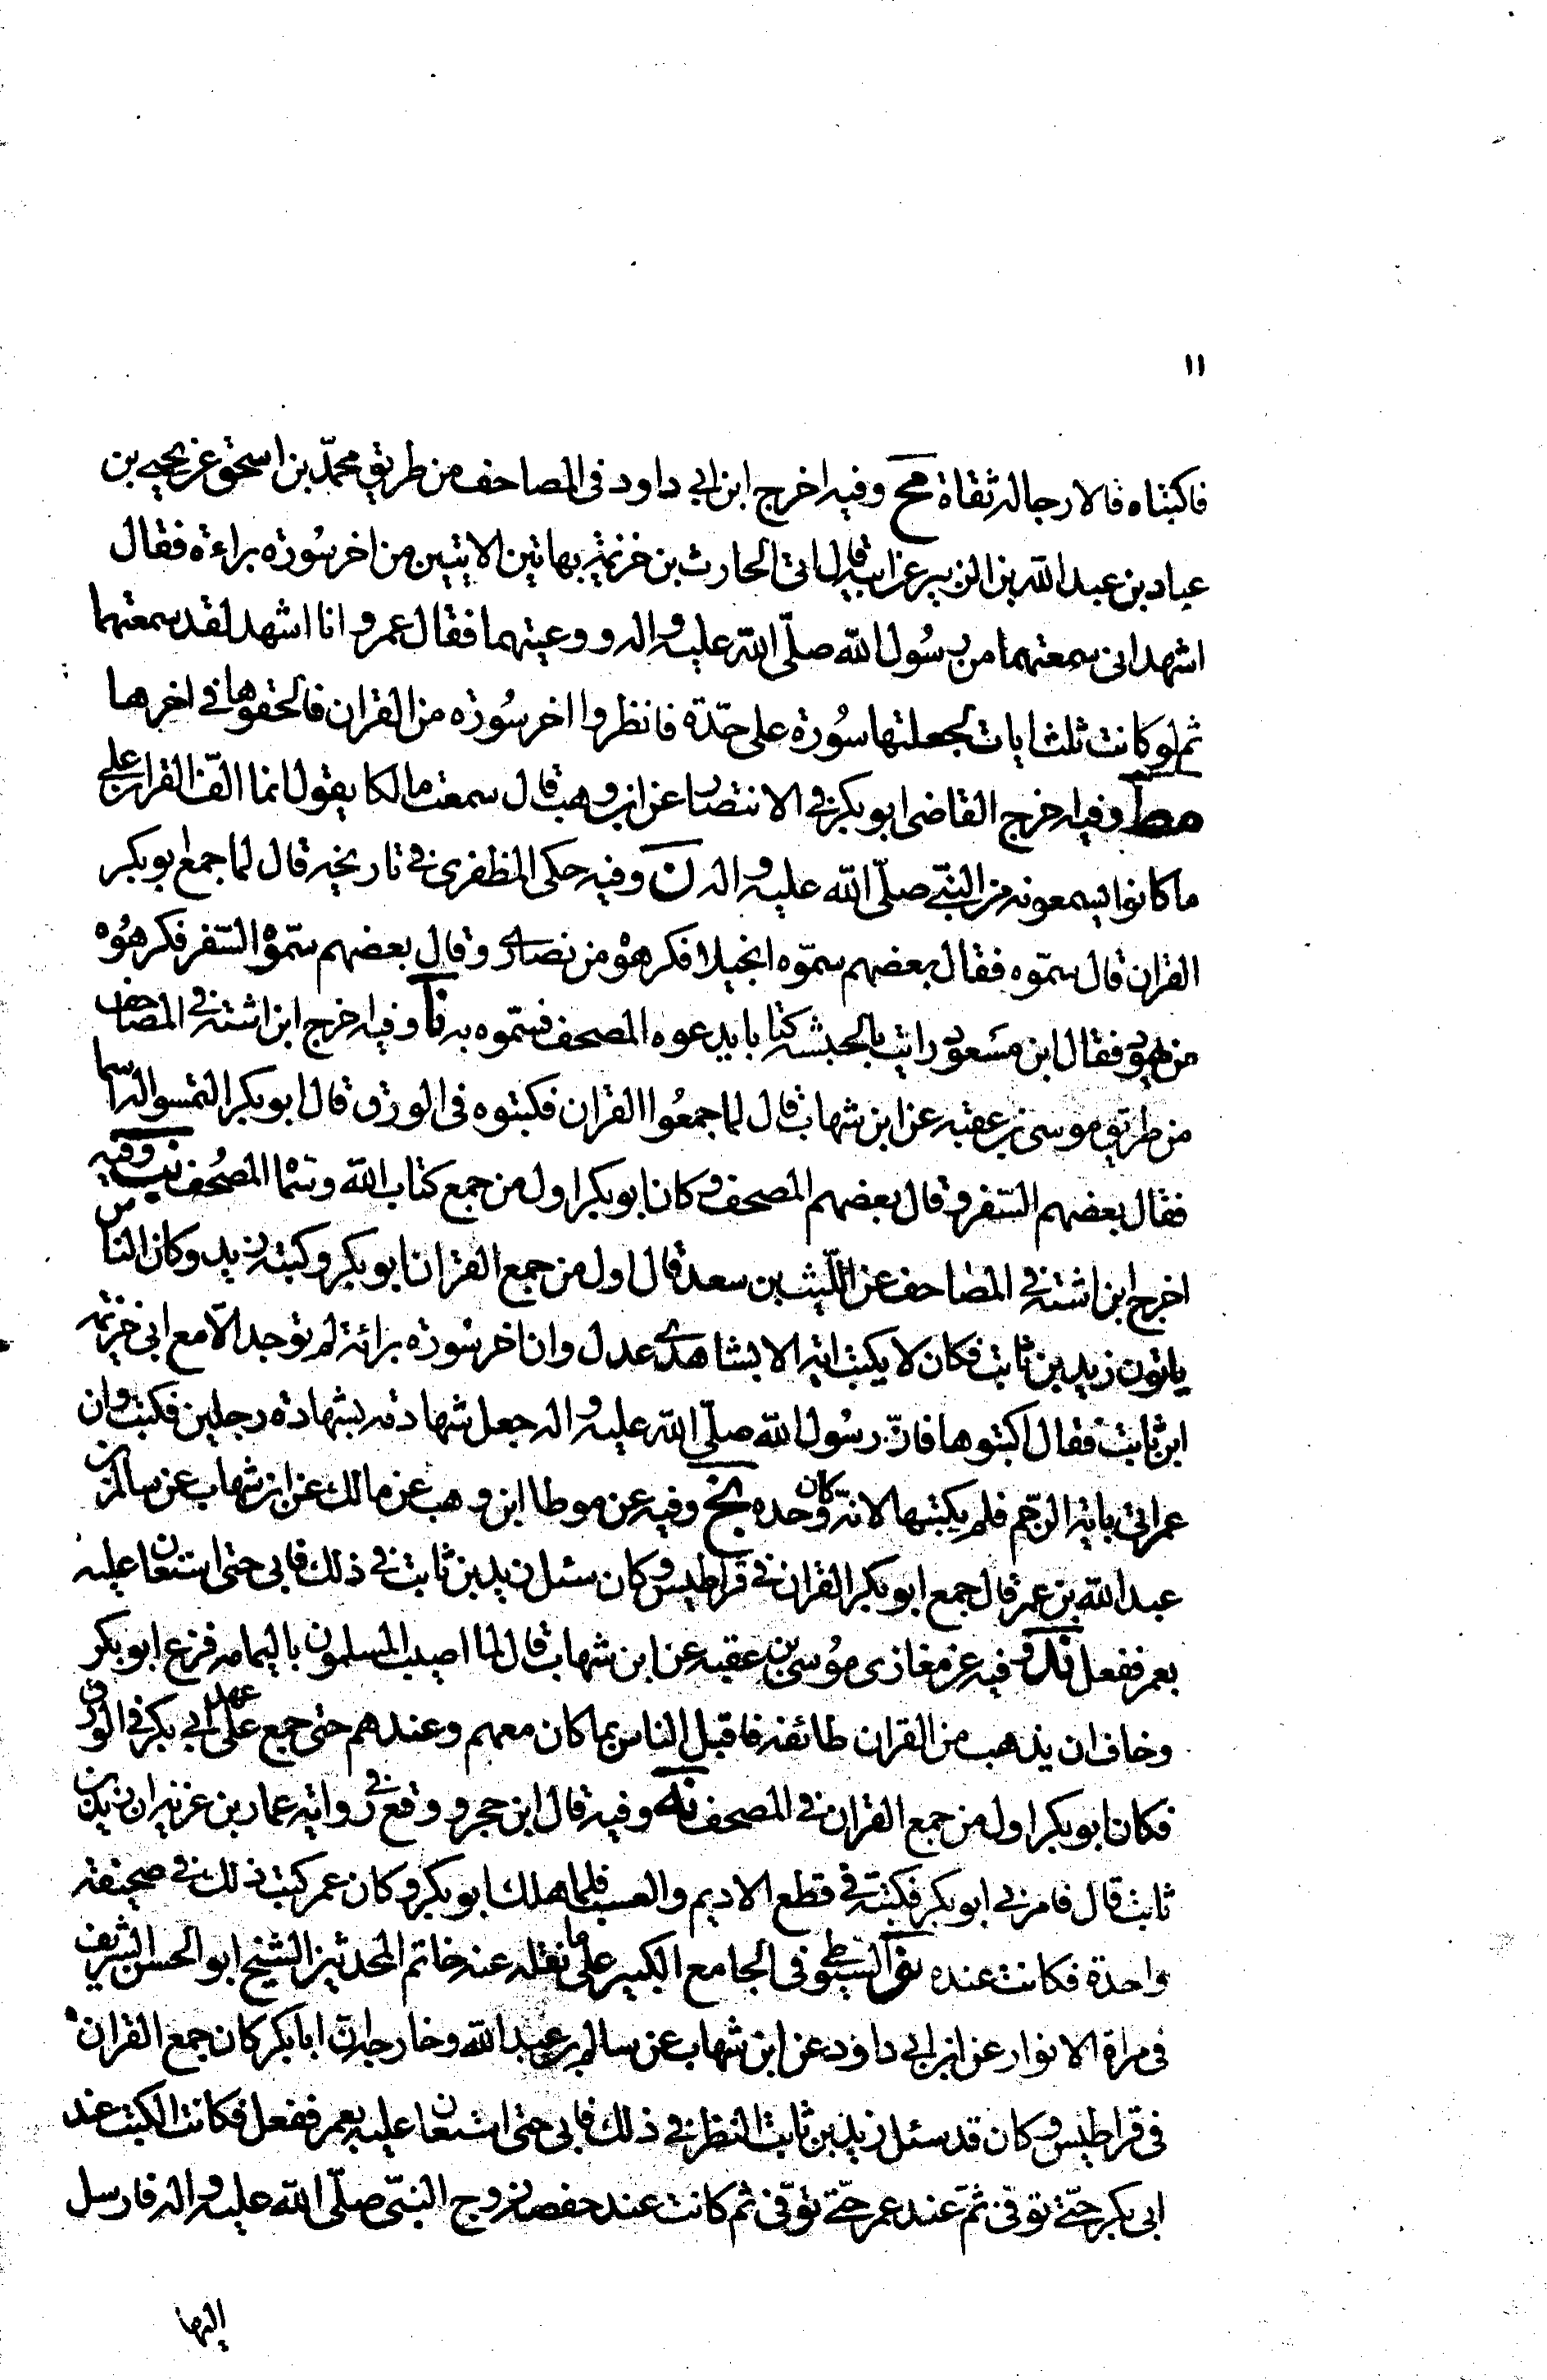 ١١
فاكتباه قالا رجاله ثقاة مح وفيه اخرج ابن ابي داود فى المصاحف من طريق محمّد بن اسحق عن يحيى بن
عباد بن عبد الله بن الزبير عن ابيه قال اتى الحارث بن خزيمة بهاتين الايتين من اخر سُورة براءة فقال
اشهد انى سمعتهما من رسُول الله صلّى الله عليه واله ووعيتهما فقال عمر وانا اشهد لقد سمعتهما
ثم لو كانت ثلث ايات لجعلتها سُورة على حدّة فانظروا اخر سُورة من القران فالحقوها فى اخرها
مط وفيه اخرج القاضى ابو بكر فى الانتصار عن ابن وهب قال سمعت مالكا يقول انما الّف القران على
ما كانوا يسمعونه من النبىّ صلّى الله عليه واله ن وفيه حكى المظفرى فى تاريخه قال لما جمع ابو بكر
القران قال سمّوه فقال بعضهم سمّوه انجيلا فكرهوْه من نصارى وقال بعضهم سمّوْا السّفر فكرهُوه
من يهود فقال ابن مسعود رايت بالحبشه كتابا يدعوه المصحف فسمّوه به نا وفيه اخرج ابن اشته فى المصاحف
من طريق موسى بن عقبه عن ابن شهاب قال لما جمعُوا القران فكتبوه فى الورق قال ابو بكر التمسوا له اسما
فقال بعضهم السّفر وقال بعضهم المصحف وكان ابو بكر اول من جمع كتاب الله وسمّا المصُحف نب وفيه
اخرج ابن اشته فى المصاحف عن اللّيث بن سعد قال اول من جمع القران ابو بكر وكتبه زيد وكان الناس
ياتون زيد بن ثابت فكان لا يكتب اية الا بشاهدى عدل وان اخر سُورة برائة لم توجد الّا مع ابى خزيمة
ابن ثابت فقال اكتبوها فانّ رسُول الله صلّى الله عليه واله جعل شهادته بشهادة رجلين فكتب وان
عمر اتى باية الرّجم فلم يكتبها لانّه كان وحده نج وفيه عن موطا ابن وهب عن مالك عن ابن شهاب عن سالم بن
عبد الله بن عمر قال جمع ابو بكر القران فى قراطيس وكان سئل زيد بن ثابت فى ذلك فابى حتى استعان عليه
بعمر ففعل ند وفيه عن مغازى مُوسى بن عقبه عن ابن شهاب قال لما اصيب المسلمون باليمامه فزع ابو بكر
وخاف ان يذهب من القران طائفه فاقبل الناس بما كان معهم وعندهم حتى جمع على عهد ابي بكر فى الورق
فكان ابو بكر اول من جمع القران فى المصحف نه وفيه قال ابن حجر ووقع فى رواية عمار بن غزيه ان زيد بن
ثابت قال فامرنى ابو بكر فكتبته فى قطع الاديم والعسب فلما هلك ابو بكر وكان عمر كتبت ذلك فى صحيفة
واحدة فكانت عنده نو السيوطى فى الجامع الكبير على ما نقله عنه خاتم المحدثين الشيخ ابو الحسن الشريف
فى مراة الانوار عن ابن ابى داود عن ابن شهاب عن سالم بن عبد الله وخارجة ان ابا بكر كان جمع القران
فى قراطيس وكان قد سئل زيد بن ثابت النظر فى ذلك فابى حتى استعان عليه بعمر ففعل فكانت الكتب عند
ابى بكر حتّى توفى ثمّ عند عمر حتّى توفّى ثم كانت عند حفصة زوج النبىّ صلّى الله عليه واله فارسل
اليها